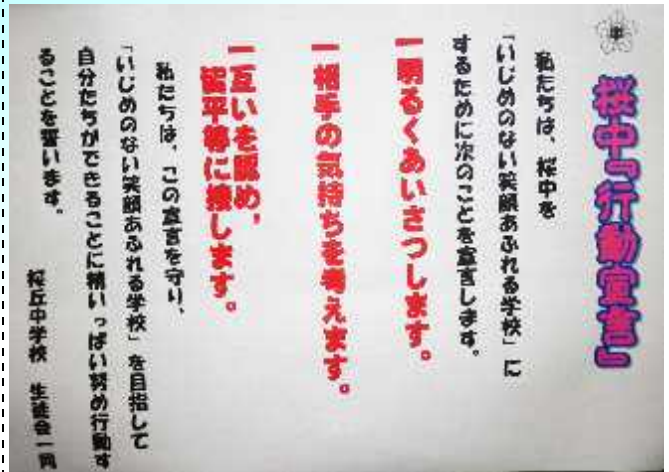 桜中『行動宣言』
私たちは、桜中を
「いじめのない笑顔あふれる学校」に
するために次のことを宣言します。
一明るくあいさつします。
一相手の気持ちを考えます。
一互いを認め、
皆平等に接します。
私たちは、この宣言を守り、
「いじめのない笑顔あふれる学校」を目指して
自分たちができることに精いっぱい努め行動す
ることを誓います。
桜丘中学校 生徒会一同